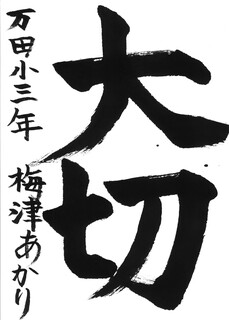 大切
万田小三年 梅津あかり